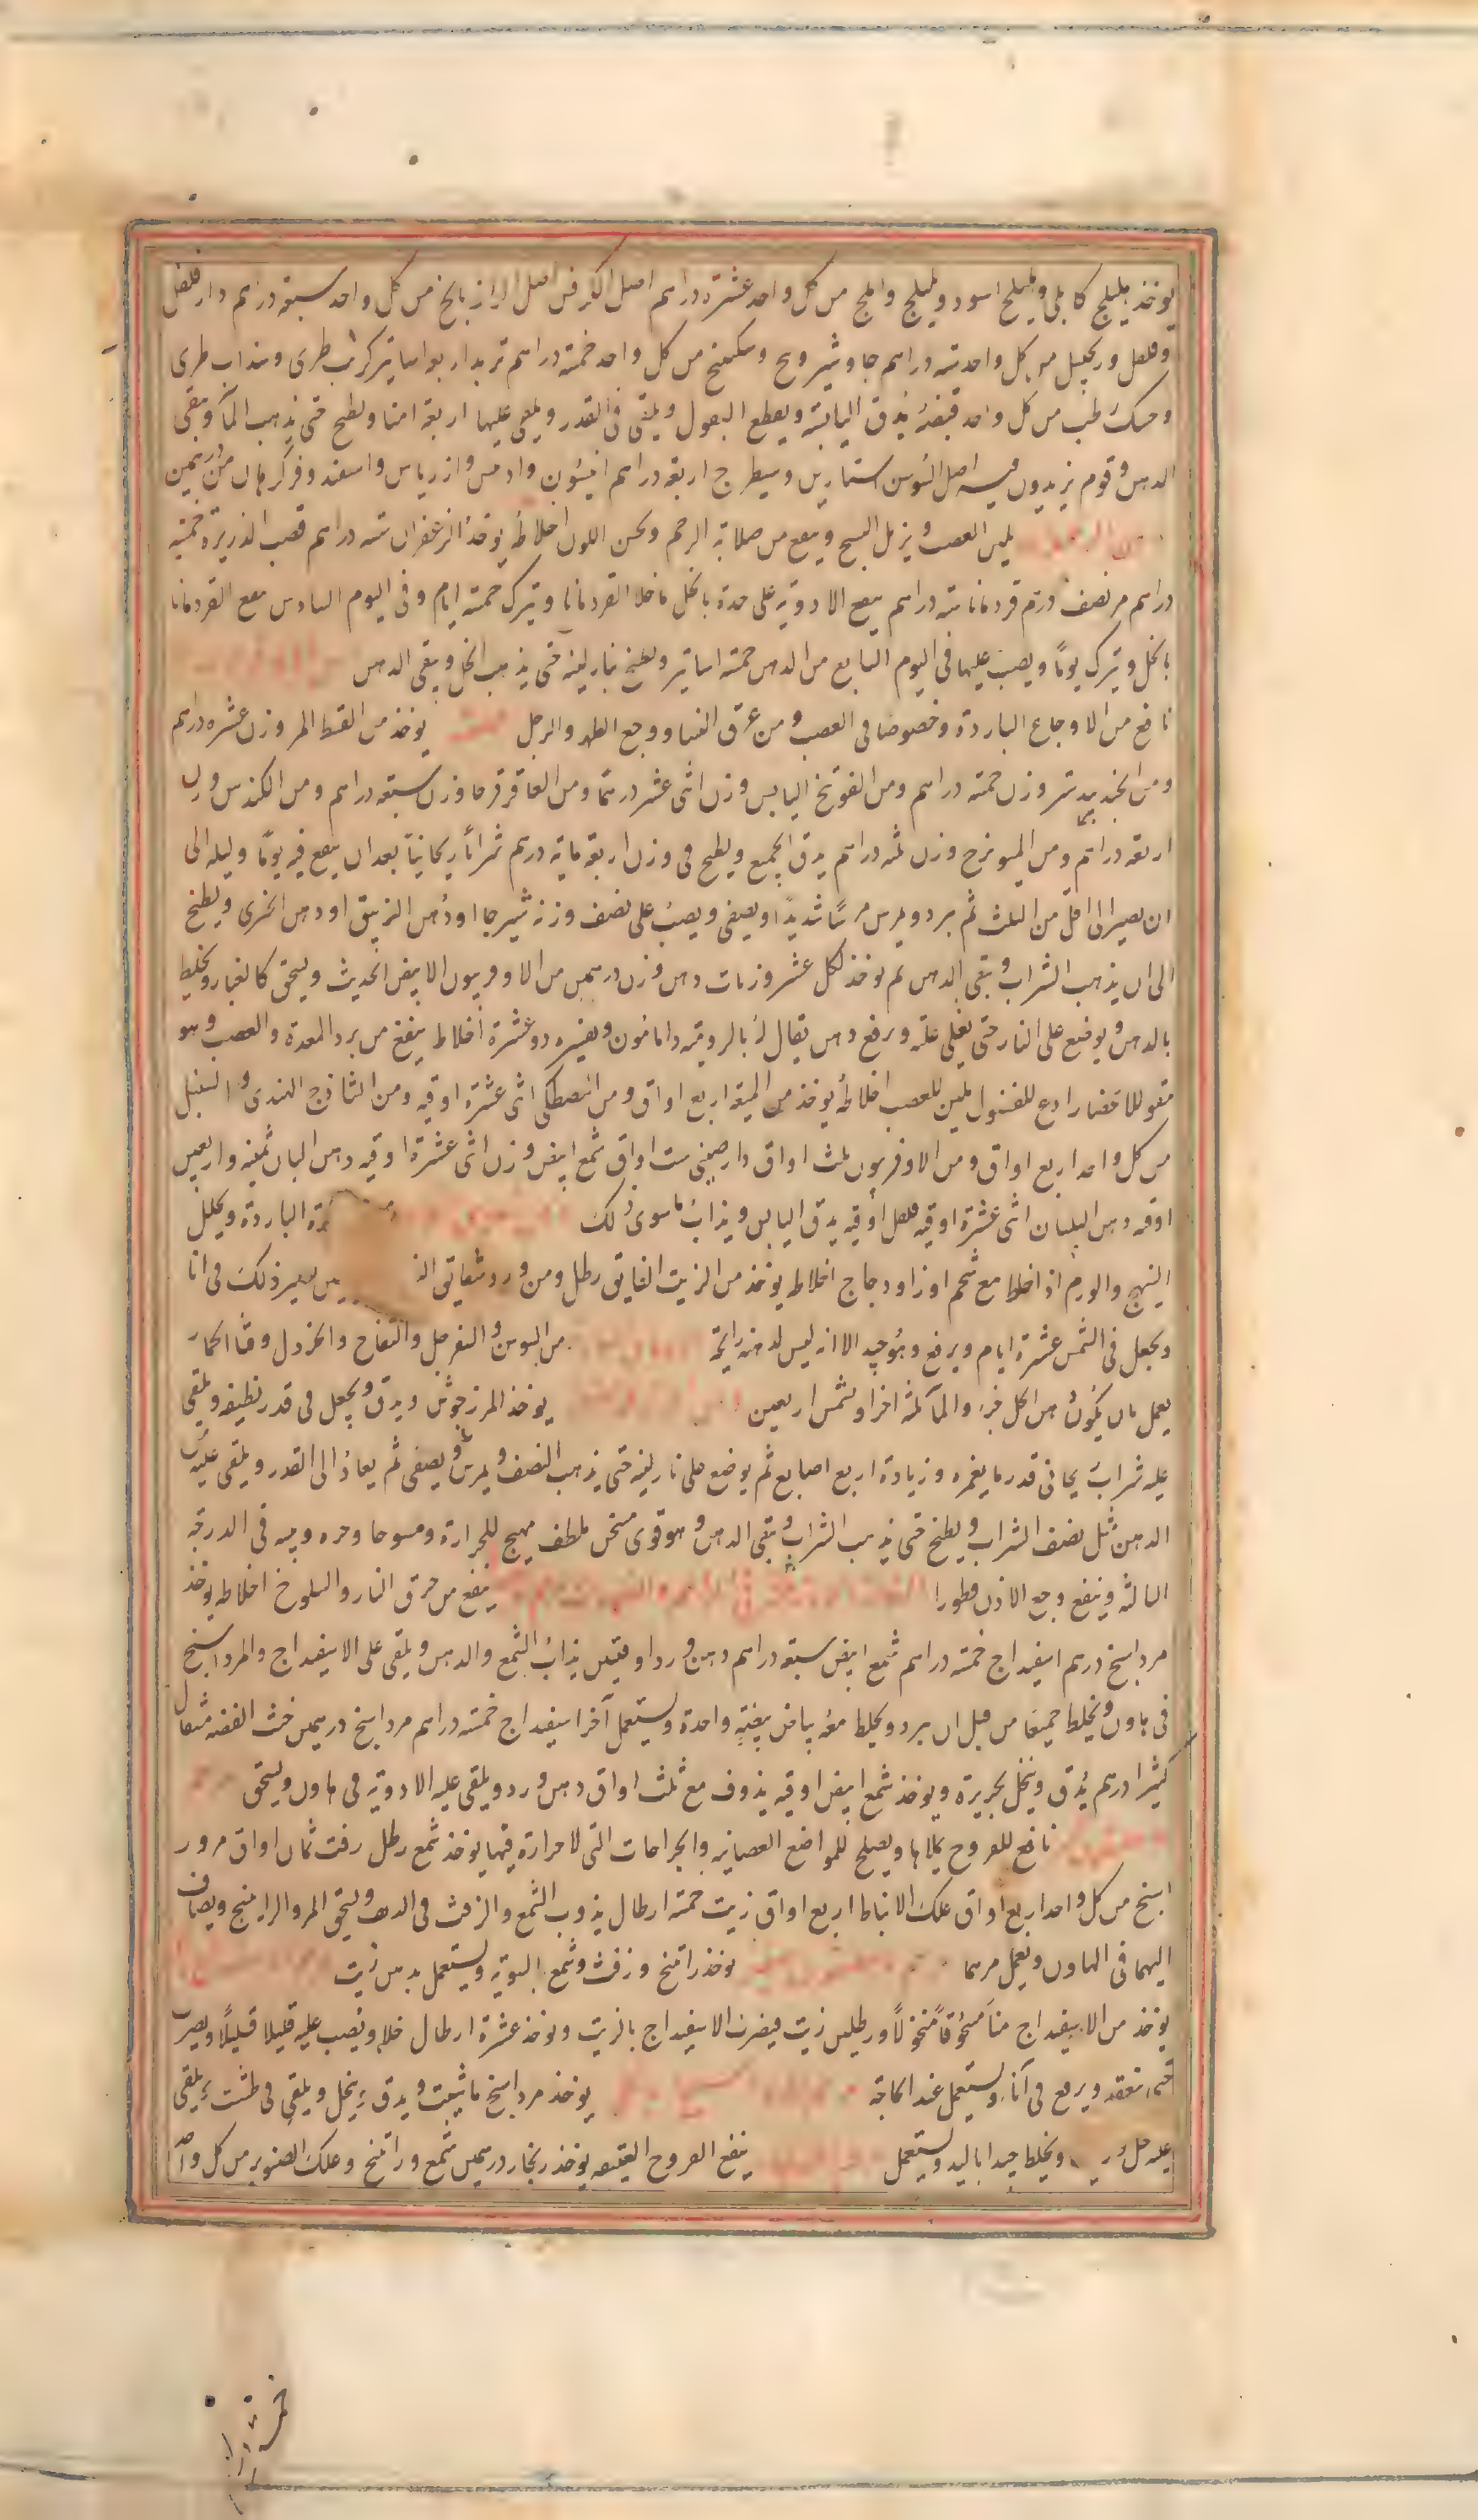 يوخذ هليلج كابلي وهليلج اسود وبليلج واملج من كل واحد عشرة دراهم اصل الكرفس اصل الرازيانج من كل واحد سبعة دراهم دارفلفل
وفلفل وزنجبيل من كل واحد ستة دراهم جاوشير ووج وسكبينج من كل واحد خمسة دراهم تربد اربع اساتير كرنب طرى وسذاب طرى
وحسك رطب من كل واحد قبضة يدق اليابسة ويقطع البقول ويلقى فى القدر ويلقى عليها اربعة امنا ويطبخ حتى يذهب المآ ويبقى
الدهن وقوم يزيدون فيه اصل السوسن استارين وشيطرج اربعة دراهم انيسون وادمن وازرياس واسفند وفركرهان من درهمين
يلين العصب ويزيل التشنج وينفع من صلابة الرحم ويحسن اللون اخلاطه يوخذ الزعفران ستة دراهم قصب الذريرة خمسة
دراهم مر نصف درهم قردمانا ستة دراهم ينقع الادوية على حدة بالخل ما خلا القردمانا ويترك خمسة ايام وفى اليوم السادس ينقع القردمانا
بالخل ويترك يومًا ويصب عليها فى اليوم السابع من الدهن خمسة اساتير ويطبخ بنار لينة حتى يذهب الخل ويبقى الدهن
نافع من الاوجاع الباردة وخصوصا فى العصب ومن عرق النسا ووجع الظهر والرجل يوخذ من القسط المر وزن عشرة دراهم
ومن الجندبيدستر وزن خمسة دراهم ومن الفوتنج اليابس وزن اثنى عشر درهما ومن العاقرقرحا وزن سبعة دراهم ومن الكندس وزن
اربعة دراهم ومن الميوبزج وزن ثلثة دراهم يدق الجميع ويطبخ فى وزن اربعة ماية درهم شرابًا ريحانيًا بعد ان ينقع فيه يومًا وليلة الى
ان يصير الى اقل من الثلث ثم يبرد ويمرس مرسًا شديدًا ويصفى ويصب على نصف وزنه شيرجا او دهن الزنبق او دهن الخيرى ويطبخ
الى ان يذهب الشراب ويبقى الدهن ثم يوخذ لكل عشر وزنات دهن وزن درهمين من الاوفربيون الابيض الحديث ويسحق كالغبار ويخلط
بالدهن ويوضع على النار حتى يغلى غلية ويرفع دهن يقال له بالرومية دامانون وتفسيره ذو عشرة اخلاط ينفع من برد المعدة والعصب وهو
مقو للاعضا رادع للفضول ملين للعصب اخلاطه يوخذ من الميعة اربع اواق ومن المصطكى اثنى عشرة اوقية ومن الساذج الهندى والسنبل
من كل واحد اربع اواق ومن الاوفربيون ثلث اواق دارصينى ست اواق شمع ابيض وزن اثنى عشرة اوقية دهن البان ثمنية واربعين
اوقية دهن البلسان اثنى عشرة اوقية فلفل اوقية يدق اليابس ويذاب ما سوى ذلك الباردة ويحلل
التهيج والورم اذا خلط مع شحم اوز او دجاج اخلاطه يوخذ من الزيت الفايق رطل ومن ورد شقايق يصير ذلك فى انا
ويجعل فى الشمس عشرة ايام ويرفع وهو جيد الا انه ليس لدهنه رائحة من السوسن والسفرجل والتفاح والخردل وقثا الحمار
يعمل بان يكون دهن الحل جزء والمآ ثلثة اجزا ويشمس اربعين يوخذ المرزنجوش ويدق ويجعل فى قدر نظيفة ويلقى
عليه شراب ريحانى قدر ما يغمره وزيادة اربع اصابع ثم يوضع على نار لينة حتى يذهب النصف ويمرس ويصفى ثم يعاد الى القدر ويلقى عليه
الدهن مثل نصف الشراب ويطبخ حتى يذهب الشراب ويبقى الدهن وهو قوى مسخن ملطف مهيج للحرارة ومسوحا وحره ويبسه فى الدرجة
الثالثة وينفع وجع الاذن قطورا ينفع من حرق النار والسلوخ اخلاطه يوخذ
مرداسنج درهم اسفيداج خمسة دراهم شمع ابيض سبعة دراهم دهن ورد اوقيتين يذاب الشمع والدهن ويلقى على الاسفيداج والمرداسنج
فى هاون ويخلط جميعا من قبل ان يبرد ويخلط معه بياض بيضة واحدة ويستعمل آخر اسفيداج خمسة دراهم مرداسنج درهمين خبث الفضة مثقال
كثيرا درهم يدق وينخل بحريرة ويوخذ شمع ابيض اوقية يذوف مع ثلث اواق دهن ورد ويلقى عليه الادوية فى هاون ويسحق
نافع للقروح يملاها ويصلح للمواضع العصبانية والجراحات التى لا حرارة فيها يوخذ شمع رطل زفت ثمان اواق مر ور
اتينج من كل واحد اربع اواق علك الانباط اربع اواق زيت خمسة ارطال يذوب الشمع والزفت فى الدهن ويسحق المر والراتينج ويضاف
اليهما فى الهاون ويعمل مرهما يوخذ راتينج وزفت وشمع السوية ويستعمل بدهن زيت
يوخذ من الاسفيداج منا مسحوقا منخولًا ورطلين زيت فيضرب الاسفيداج بالزيت ويوخذ عشرة ارطال خلا ويصب عليه قليلا قليلًا ويضرب
حتى ينعقد ويرفع فى انآء ويستعمل عند الحاجة يوخذ مرداسنج ما شئت ويدق وينخل ويلقى فى طشت ويلقى
عليه خل ويخلط جيدا باليد ويستعمل ينفع القروح العتيقة يوخذ زنجار درهمين شمع وراتينج وعلك الصنوبر من كل واحد